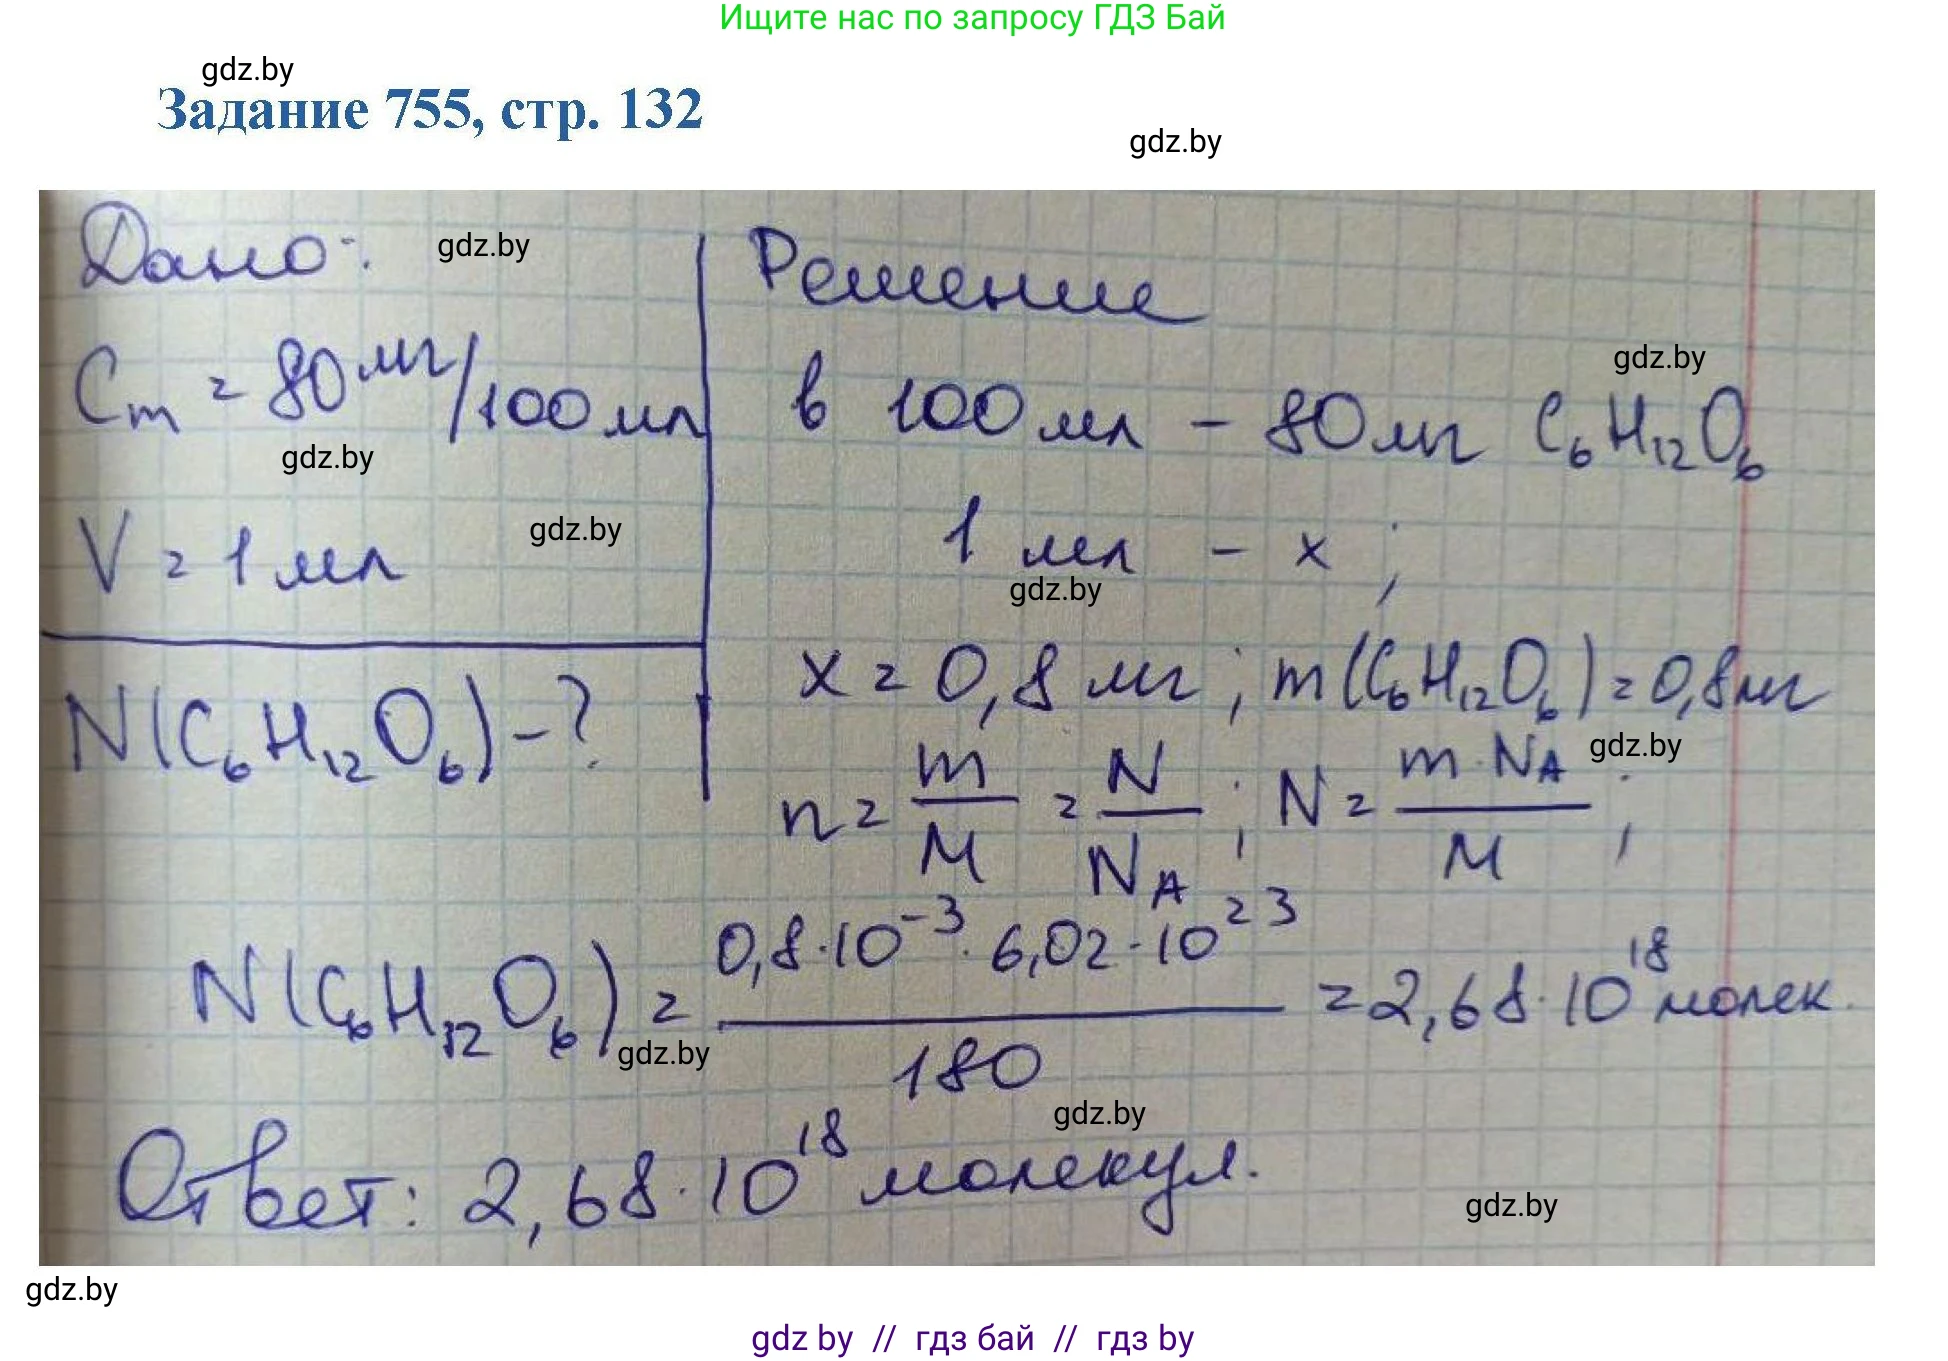 Ищите нас по запросу ГДЗ Бай
gdz.by
Задание 755, стр. 132
gdz.by
Дано:
gdz.by
Cm = 80 мг/100 мл
gdz.by
V = 1 мл
gdz.by
N(C₆H₁₂O₆) - ?
Решение
gdz.by
в 100 мл - 80 мг C₆H₁₂O₆
1 мл - x ;
gdz.by
x = 0,8 мг ; m(C₆H₁₂O₆) = 0,8 мг
gdz.by
n = m/M = N/N_A ; N = m·N_A/M ;
N(C₆H₁₂O₆) = 0,8·10⁻³·6,02·10²³/180 = 2,68·10¹⁸ молек.
gdz.by
gdz.by
Ответ: 2,68·10¹⁸ молекул.
gdz.by
gdz.by
gdz by // гдз бай // гдз by